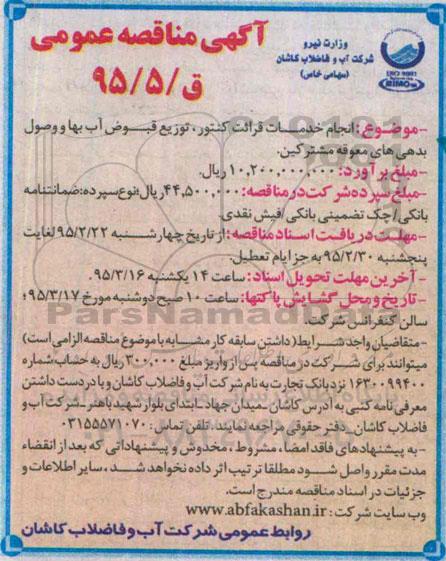 آگهی مناقصه عمومی
ق/۹۵/۵
وزارت نیرو
شرکت آب و فاضلاب کاشان
(سهامی خاص)
ISO 9001
- موضوع: انجام خدمات قرائت کنتور، توزیع قبوض آب بها و وصول
بدهی های معوقه مشترکین.
- مبلغ برآورد: ۱۰,۲۰۰,۰۰۰,۰۰۰ ریال.
- مبلغ سپرده شرکت در مناقصه: ۴۴,۵۰۰,۰۰۰ ریال؛ نوع سپرده: ضمانتنامه
بانکی/چک تضمینی بانکی/فیش نقدی.
- مهلت دریافت اسناد مناقصه: از تاریخ چهارشنبه ۹۵/۲/۲۲ لغایت
پنجشنبه ۹۵/۲/۳۰ به جز ایام تعطیل.
- آخرین مهلت تحویل اسناد: ساعت ۱۴ یکشنبه ۹۵/۳/۱۶.
- تاریخ و محل گشایش پاکتها: ساعت ۱۰ صبح دوشنبه مورخ ۹۵/۳/۱۷؛
سالن کنفرانس شرکت.
- متقاضیان واجد شرایط (داشتن سابقه کار مشابه با موضوع مناقصه الزامی است)
میتوانند برای شرکت در مناقصه پس از واریز مبلغ ۳۰۰,۰۰۰ ریال به حساب شماره
۱۶۳۰۰۹۹۴۰۰ نزد بانک تجارت به نام شرکت آب و فاضلاب کاشان و با در دست داشتن
معرفی نامه کتبی به آدرس کاشان_میدان جهاد_ابتدای بلوار شهید باهنر_شرکت آب و
فاضلاب کاشان_دفتر حقوقی مراجعه نمایند. تلفن تماس: ۰۳۱۵۵۵۷۱۰۷۰
- به پیشنهادهای فاقد امضا، مشروط، مخدوش و پیشنهاداتی که بعد از انقضاء
مدت مقرر واصل شود مطلقا ترتیب اثر داده نخواهد شد، سایر اطلاعات و
جزئیات در اسناد مناقصه مندرج است.
وب سایت شرکت: www.abfakashan.ir
روابط عمومی شرکت آب و فاضلاب کاشان
ParsNamadData